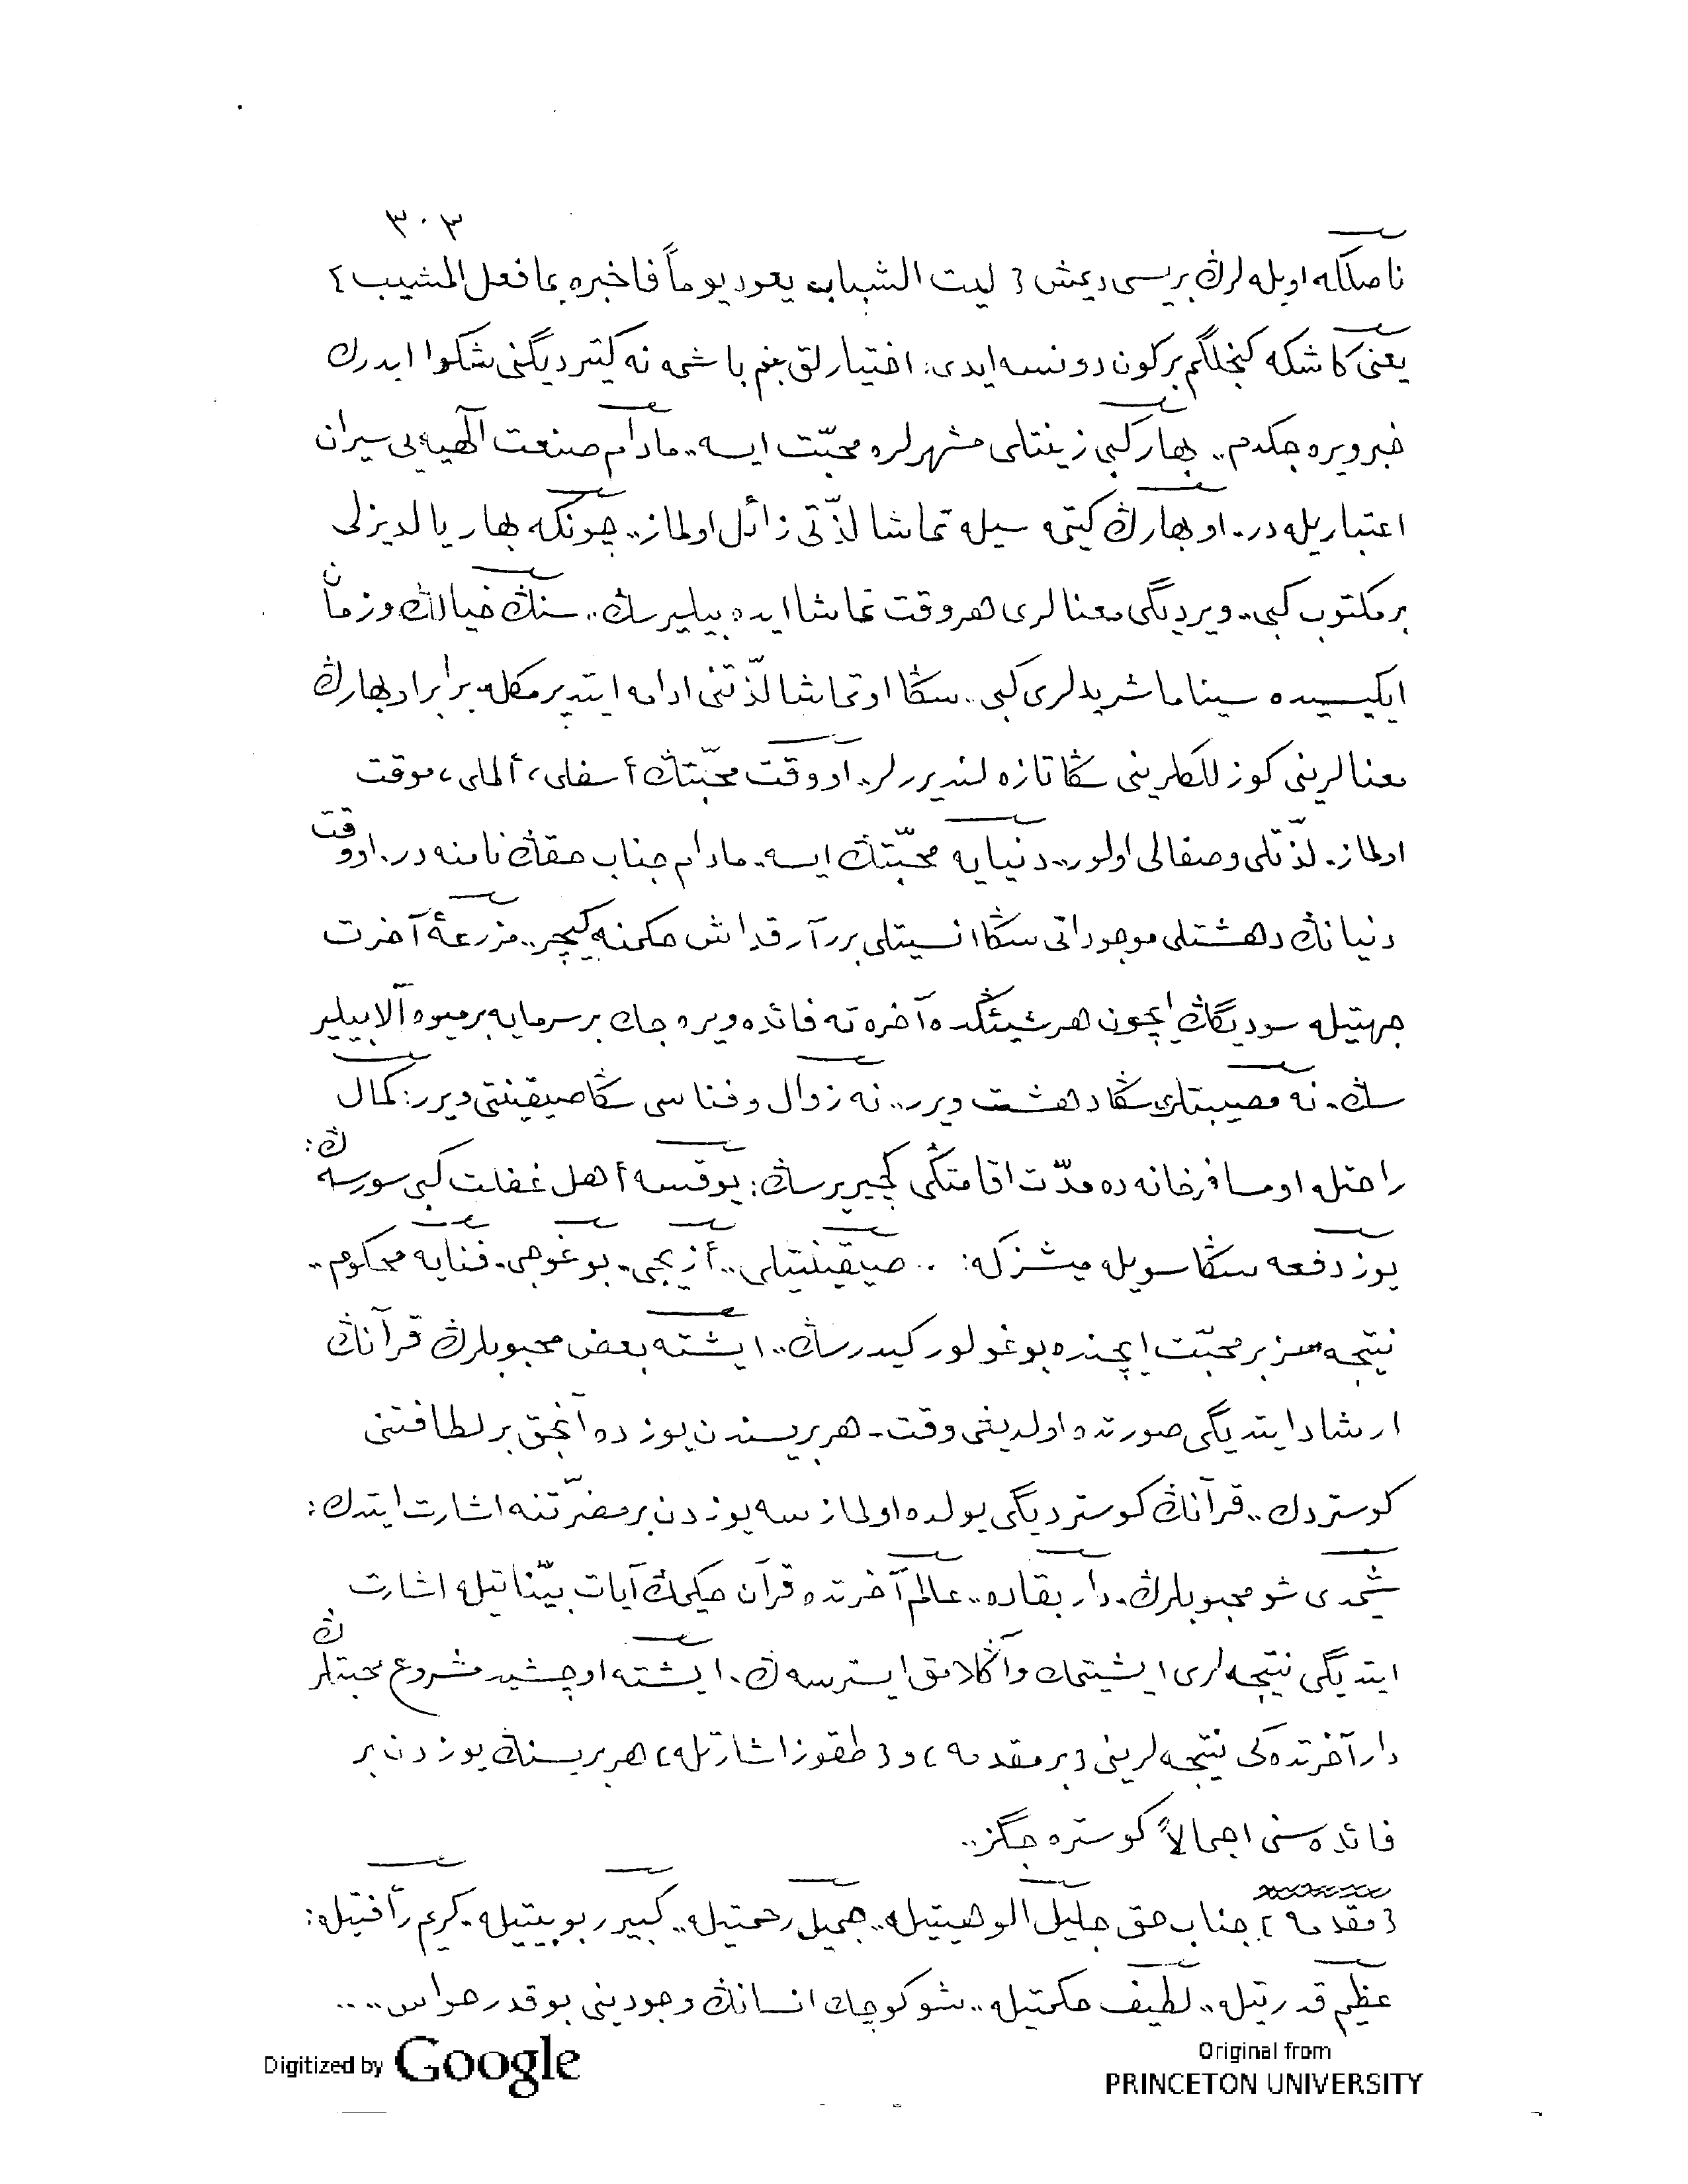 ٣٠٣
ناصلكه اويله لرڭ بريسى ديمش { ليت الشباب يعود يوماً فاخبره بما فعل المشيب }
يعنى كاشكه كنجلگم بر كون دونسه ايدى: اختيارلق بنم باشمه نه كتيرديگنى شكوا ايدرك
خبر ويره جكدم.. بهار كبى زينتلى مشهرلره محبّت ايسه.. مادام صنعت آلهيه يى سيران
اعتباريله در. او بهارڭ كيتمه سيله تماشا لذّتى زائل اولماز.. چونكه بهار يالديزلى
بر مكتوب كبى.. ويرديگى معنالرى هر وقت تماشا ايده بيليرسڭ.. سنڭ خيالڭ و زمان
ايكيسيده سينما شريدلرى كبى.. سڭا او تماشا لذّتنى ادامه ايتديرمكله برابر او بهارڭ
معنالرينى كوزللكلرينى سڭا تازه لنديررلر.. او وقت محبّتڭ أسفلى، ألملى، موقت
اولماز. لذّتلى و صفالى اولور.. دنيايه محبّتڭ ايسه. مادام جناب حقڭ نامنه در. او وقت
دنيانڭ دهشتلى موجوداتى سڭا انسيتلى برر آرقداش حكمنه كيچر.. مزرعهٔ آخرت
جهتيله سوديگڭ ايچون هر شيئڭده آخره ته فائده ويره جك بر سرمايه بر ميوه آلابيلير
سڭ. نه مصيبتلرى سڭا دهشت ويرر.. نه زوال و فناسى سڭا صيقينتى ويرر: كمال
راحتله او مسافرخانه ده مدّت اقامتڭى كچيريرسڭ: يوقسه أهل غفلت كبى سورسه ڭ:
يوز دفعه سڭا سويله ميشزكه: .. صيقينتيلى.. أزيجى. بوغوجى. فنايه محكوم..
نتيجه سز بر محبّت ايچنده بوغولور كيدرسڭ.. ايشته بعض محبوبلرڭ قرآنڭ
ارشاد ايتديگى صورتده اولديغى وقت. هر بريسندن يوزده آنجق بر لطافتنى
كوستردك.. قرآنڭ كوسترديگى يولده اولماز سه يوزدن بر مضرّتنه اشارت ايتدك:
شيمدى شو محبوبلرڭ. دار بقاده.. عالم آخرتده قرآن حكيمڭ آيات بيّناتيله اشارت
ايتديگى نتيجه لرى ايشيتمك و آڭلامق ايسترسه ڭ. ايشته او چشيد مشروع محبتلرڭ
دار آخرتده كى نتيجه لرينى { بر مقدمه } و { طقوز اشارتله } هر بريسنڭ يوزدن بر
فائده سنى اجمالاً كوستره جگز..
{ مقدمه } جناب حق جليل الوهيتيله.. جميل رحمتيله.. كبير ربوبيتيله. كريم رأفتيله:
عظيم قدرتيله.. لطيف حكمتيله.. شو كوچك انسانڭ وجودينى بو قدر حواس....
Digitized by Google
Original from
PRINCETON UNIVERSITY